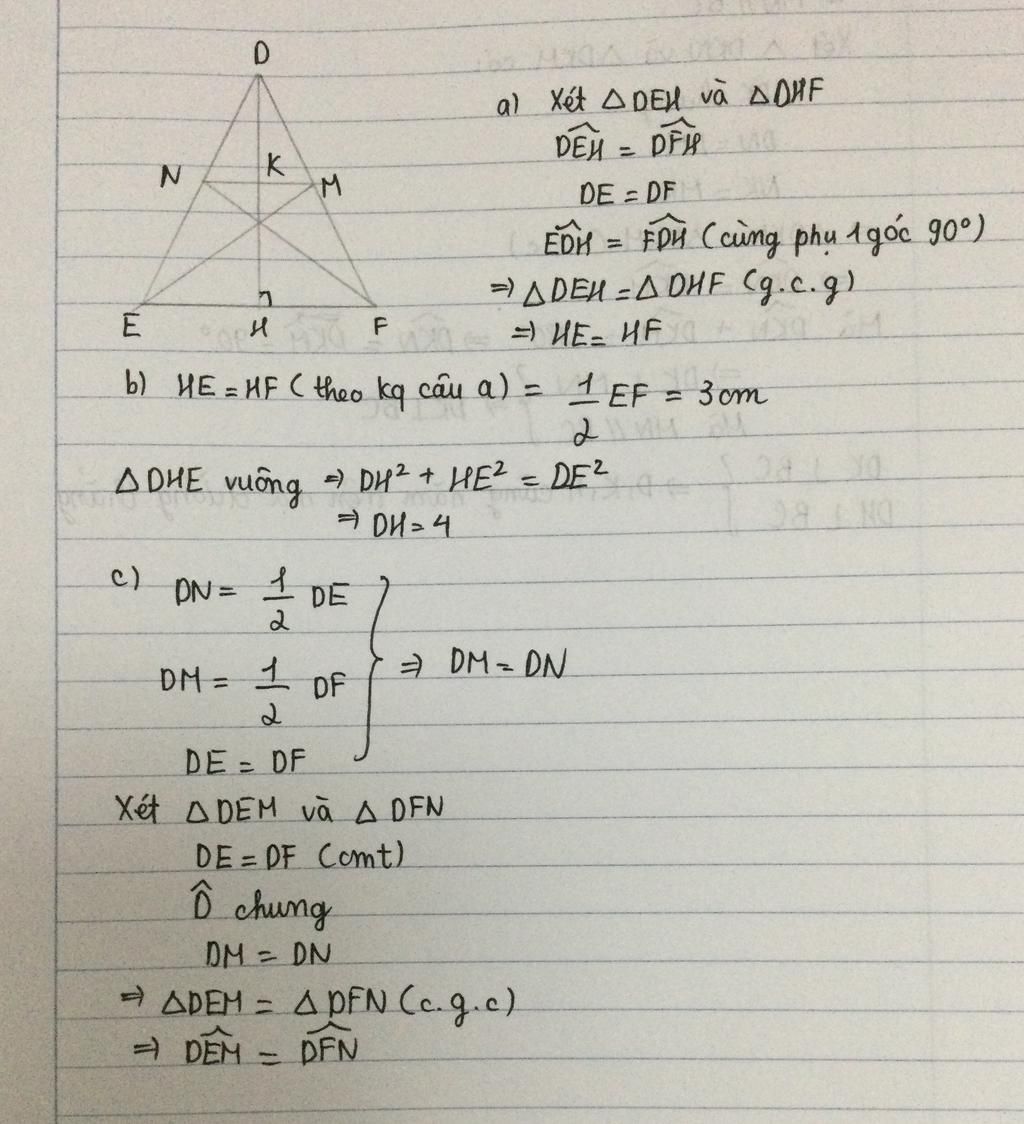 D
N K M
E H F
a) Xét △DEH và △DHF
DEH^ = DFH^
DE = DF
EDH^ = FDH^ (cùng phụ 1 góc 90°)
⇒ △DEH = △DHF (g.c.g)
⇒ HE = HF
b) HE = HF (theo kq câu a) = 1/2 EF = 3cm
△DHE vuông ⇒ DH² + HE² = DE²
⇒ DH = 4
c) DN = 1/2 DE
DM = 1/2 DF
DE = DF
} ⇒ DM = DN
Xét △DEM và △DFN
DE = DF (cmt)
D^ chung
DM = DN
⇒ △DEM = △DFN (c.g.c)
⇒ DEM^ = DFN^